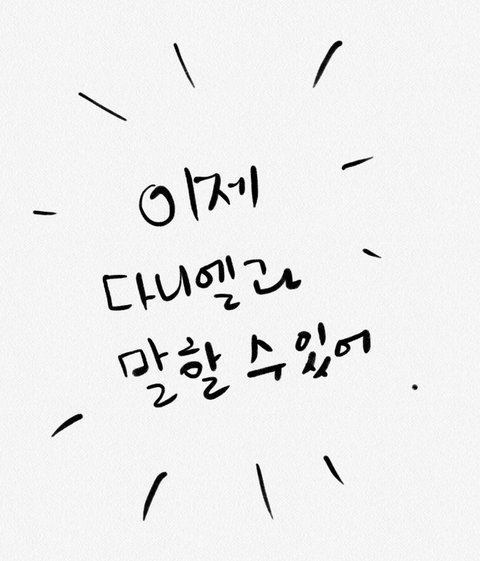 이제
다니엘과
말할 수 있어